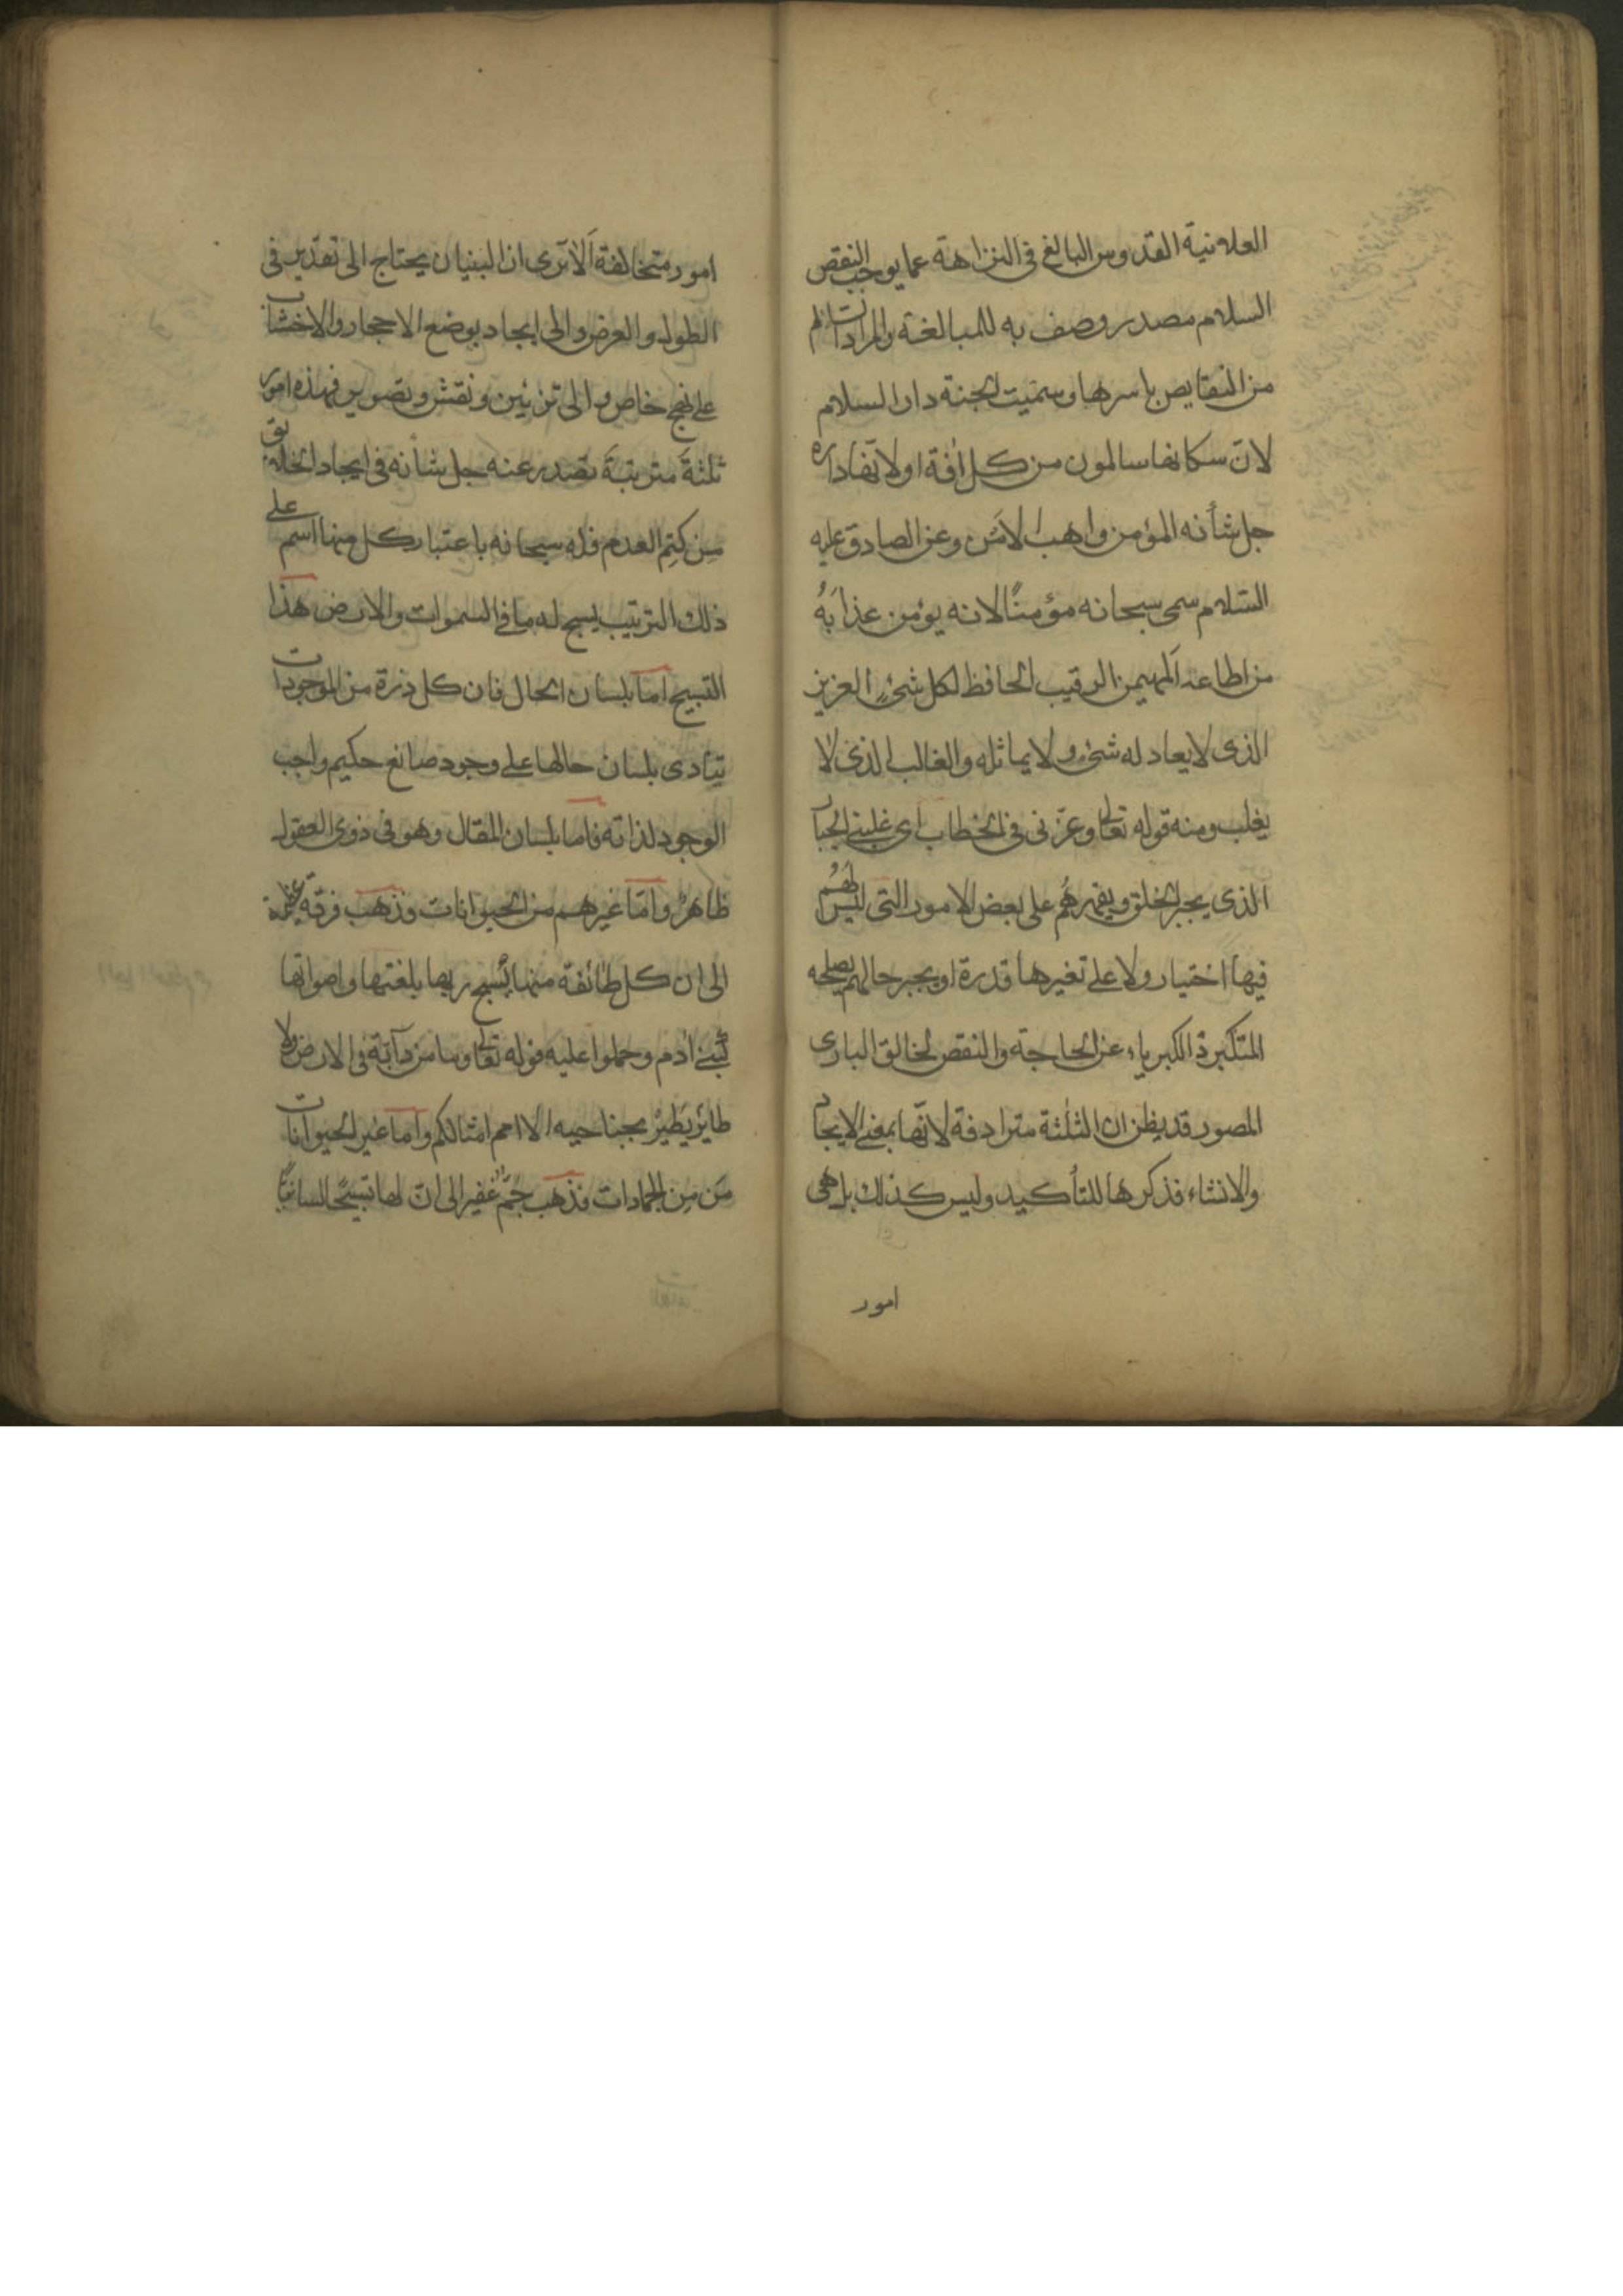 العلانية القدوس البالغ فى النزاهة عما يوجب النقص
السلام مصدر وصف به للمبالغة والمراد السالم
من النقايص باسرها وسميت الجنة دار السلام
لان سكانها سالمون من كل افة اولانها داره
جل شأنه المؤمن واهب الامن وعن الصادق عليه
السلام سمى سبحانه مؤمنًا لانه يؤمن عذابَهُ
من اطاعه المهيمن الرقيب الحافظ لكل شئ العزيز
الذى لا يعادله شئ ولا يماثله والغالب الذى لا
يغلب ومنه قوله تعالى وعزنى فى الخطاب اى غلبنى الجبار
الذى يجبر الخلق ويقهرهُم على بعض الامور التى ليس لهُم
فيها اختيار ولا على تغيرها قدرة او يجبر حالهم يصلحه
المتكبر ذ الكبرياء عن الحاجة والنقص الخالق البارى
المصور قد يظن ان الثلثة مترادفة لانها بمعنى الايجاد
والانشاء فذكرها للتأكيد وليس كذلك بل هى
امور
امور متخالفة اَلا ترى ان البنيان يحتاج الى تقدير فى
الطول والعرض والى ايجاد بوضع الاحجار والاخشاب
على نهج خاص والى تزئين ونقش وتصوير فهذه امور
ثلثة مترتبة تصدر عنه جل شأنه فى ايجاد الخلايق
مِن كتِم العدم فله سبحانه باعتبار كل منها اسم على
ذلك الترتيب يسبح له ما فى السموات والارض هذا
التسبيح اما بلسان الحال فان كل ذرة من الموجودات
تنادى بلسان حالها على وجود صانع حكيم واجب
الوجود لذاته فاما بلسان المقال وهو فى ذوى العقول
ظاهرٌ واما غيرهم من الحيوانات فذهب فرقة عظيمة
الى ان كل طائفة منها يسبح ربها بلغتها واصواتها
كبنى ادم وحملوا عليه قوله تعالى وما من دآبة فى الارض ولا
طاير يَطيرُ بجناحيه الا امم امثالكم واما غير الحيوانات
مَن مِن الجمادات فذهب جمٌّ غفير الى ان لها تسبيحًا لسانيًا